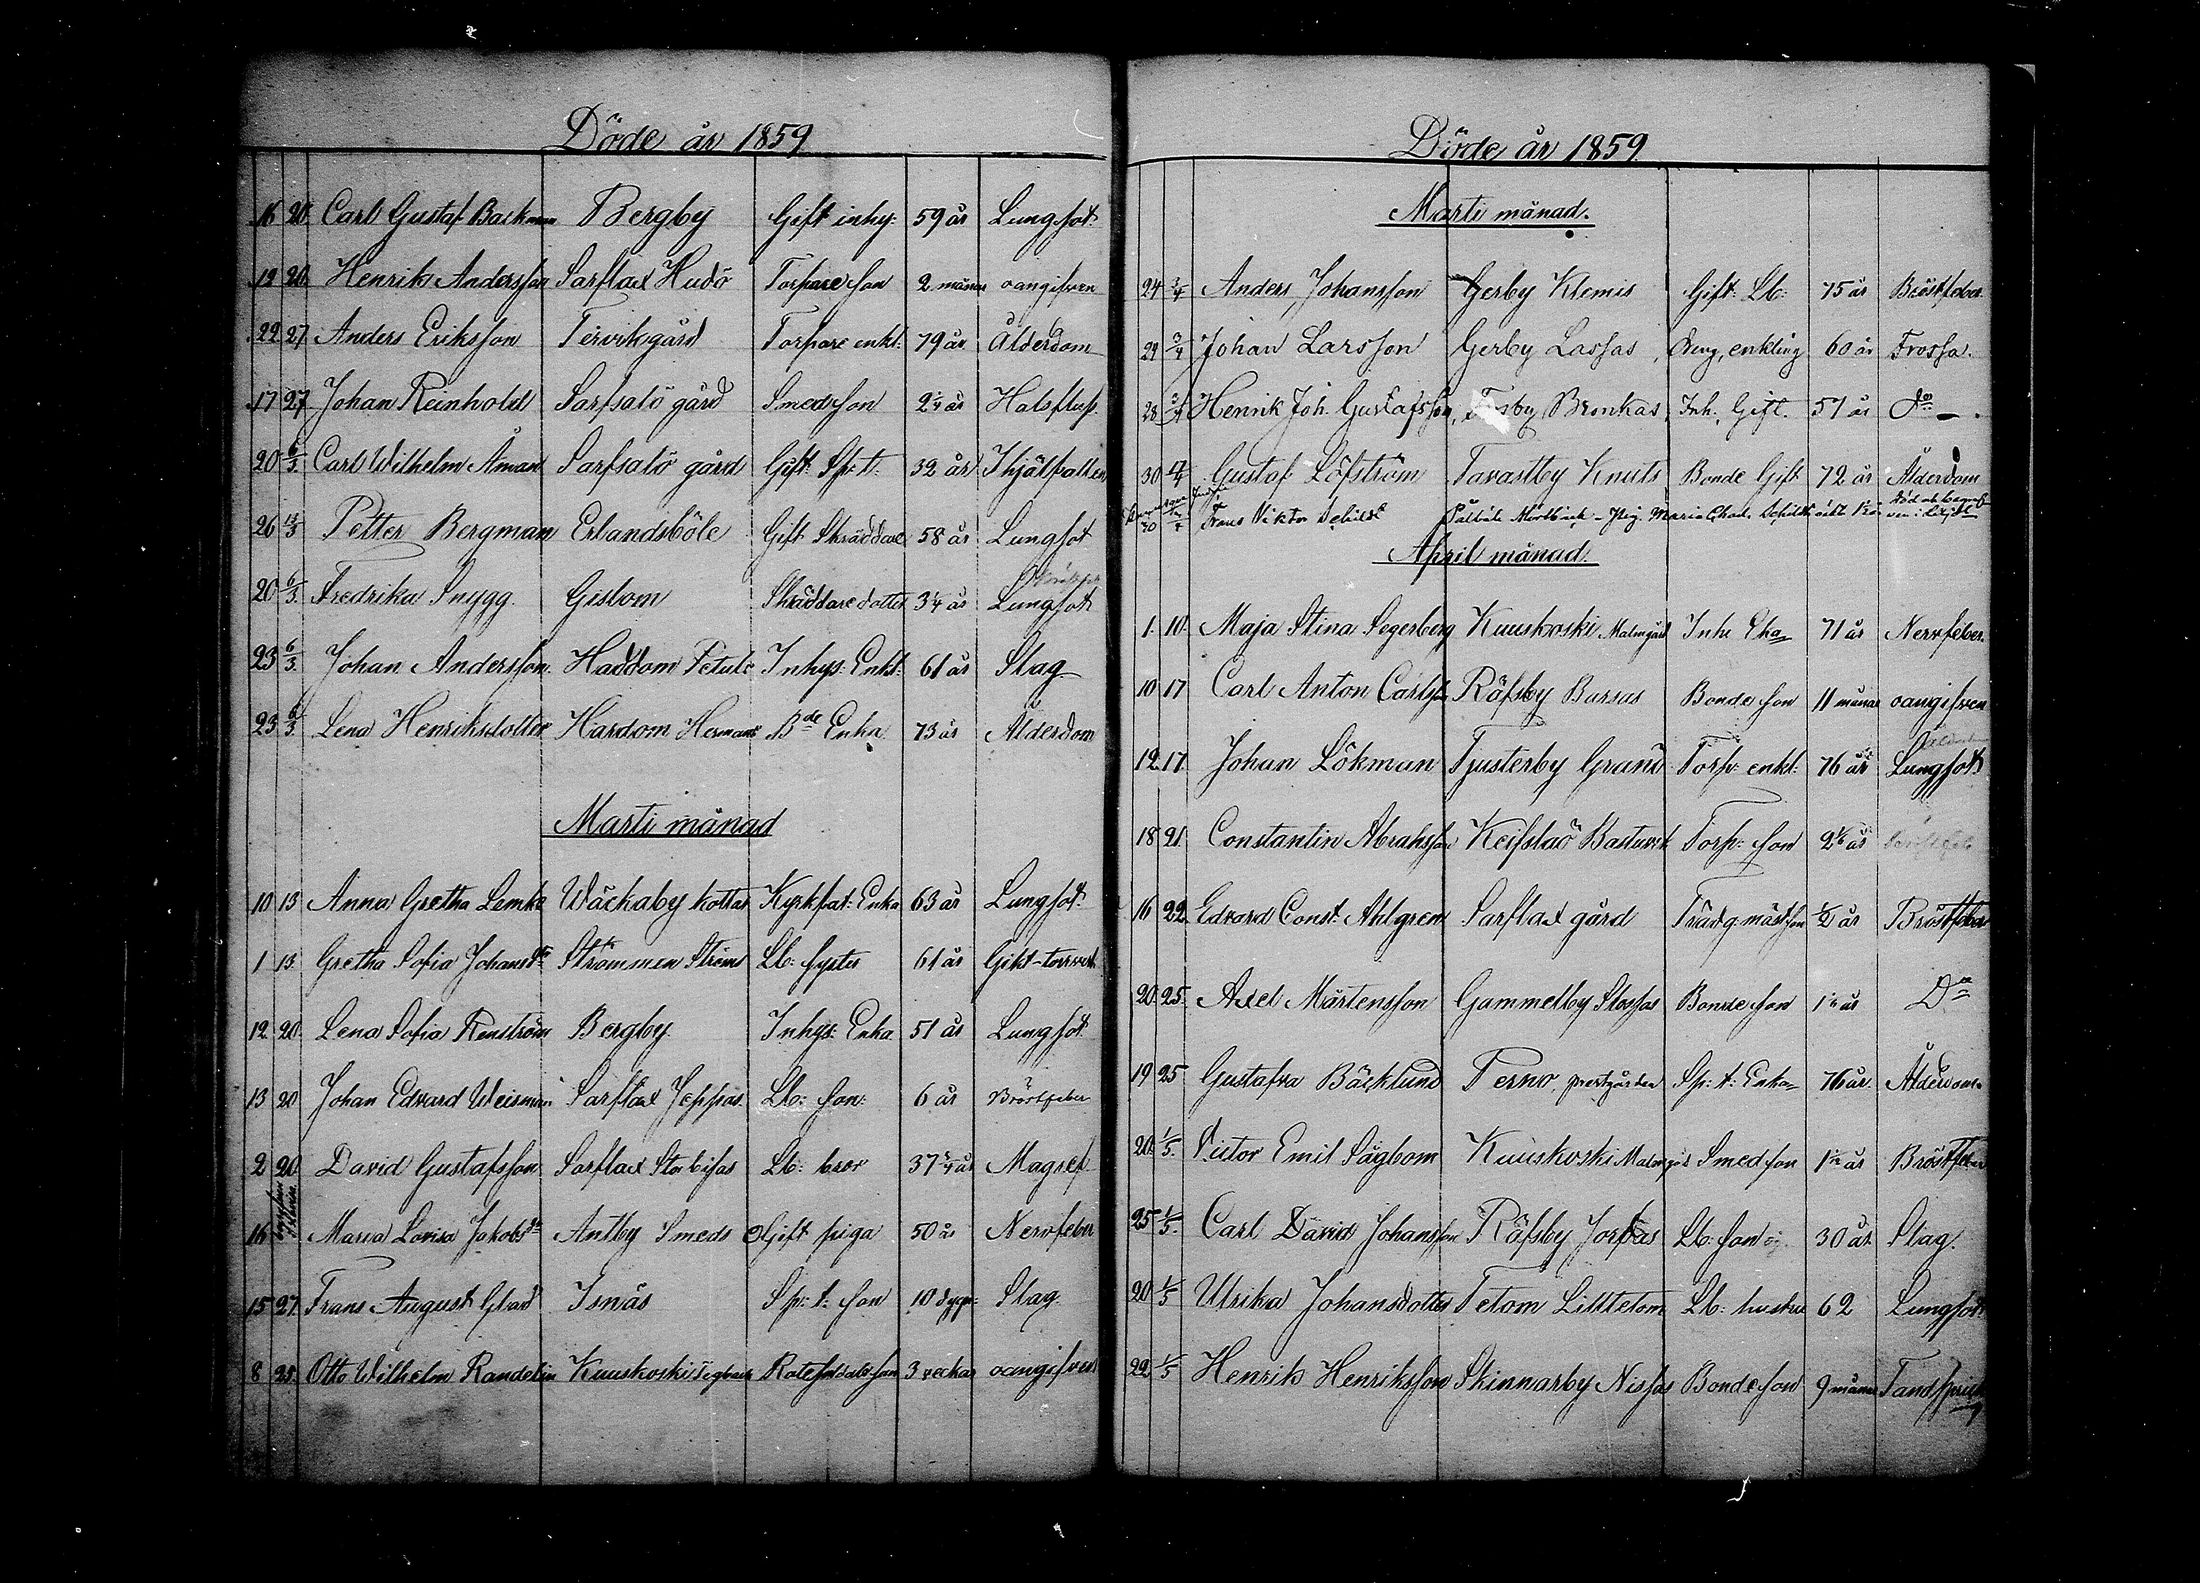 Döde år 1859
16 20 Carl Gustaf Backman Bergby Gift inhy: 59 år Lungsot
19 20 Henrik Andersson Sarflax Hudö Torpare son 2 månar oangifven
22 27 Anders Eriksson Tervikgård Torpare enkl: 79 år Ålderdom
17 27 Johan Reinhold Sarfsalö gård Smedsson 2 1/4 år Halsfluss
20 6/3 Carl Wilhelm Åman Sarfsalö gård Gift Sp: t: 32 år Ihjälfallen
26 13/3 Petter Bergman Erlandsböle Gift Skräddare 58 år Lungsot
20 6/3 Fredrika Snygg Gislom Skräddare dotter 3 1/4 år Lungsot
23 6/3 Johan Andersson Haddom Petuls Inhys: Enkl: 61 år Slag
23 6/3 Lena Henriksdotter Hardom Hermans Bde Enka 73 år Ålderdom
Marti månad
10 13 Anna Gretha Lemke Wäckaby kottar Kyrkfat: Enka 63 år Lungsot
1 13 Gretha Sofia Johansdr Strömmen Ströms Lb: syster 61 år Gikt-torrverk
12 20 Lena Sofia Renström Bergby Inhys: Enka 51 år Lungsot
13 20 Johan Edvard Weisman Sarflax Jeppas Lb: son: 6 år Bröstfeber
2 20 David Gustafsson Sarflax Storbisas Lb: bror 37 3/4 år Magref
16 Maria Lovisa Jakobsdr Antby Smeds Ogift piga 50 år Nervfeber
15 27 Frans August Glad Isnäs Sp: t: son 10 dygn: Slag
8 25 Otto Wilhelm Randelin Kuuskoski Tegbruk son 3 veckor oangifven
Döde år 1859
Marti månad.
24 3/4 Anders Johansson Gerby Klemis Gift: Lb: 75 år Bröstfeber
29 3/4 Johan Larsson Gerby Lassas, Dreng, enkling 60 år Frossa.
28 3/4 Henrik Joh. Gustafsson, Bronkas, Inh. Gift. 57 år Do.
30 4/4 Gustaf Löfström Tavastby Knuts Bonde Gift 72 år Ålderdom
30 Frans Viktor Schildt Pålböle Nordbäck - Maria Charl. Schildt
April månad.
1 10 Maja Stina Segerberg Kuuskoski Malmgård Inh Eka 71 år Nervfeber
10 17 Carl Anton Carlss Räfsby Bursas Bonde son 11 månar oangifven
12 17 Johan Lökman Tjusterby Grand Torp: enkl: 76 år Lungsot
18 21 Constantin Abrahsson Keifsalö Bastuvik Torp: son 2 1/2 år
16 22 Edvard Const. Ahlgren Sarflax gård Trädg. mäst son 1/2 år Bröstfeber
20 25 Axel Mårtensson Gammelby Stossas Bonde son 1 1/2 år Do
19 25 Gustafva Bäcklund Perno prestgården Sp: t: Enka 76 år. Ålderdom
20 1/5 Victor Emil Sågbom Kuuskoski Malmgård Smed son 1 1/2 år Bröstfeber
25 1/5 Carl David Johansson Räfsby Jorpas Lb: son og. 30 år Slag.
20 1/5 Ulrika Johansdotter Tetom Lilltetom Lb: hustru 62 Lungsot
22 1/5 Henrik Henriksson Skinnarby Nissas Bondeson 9 månar Tandspr